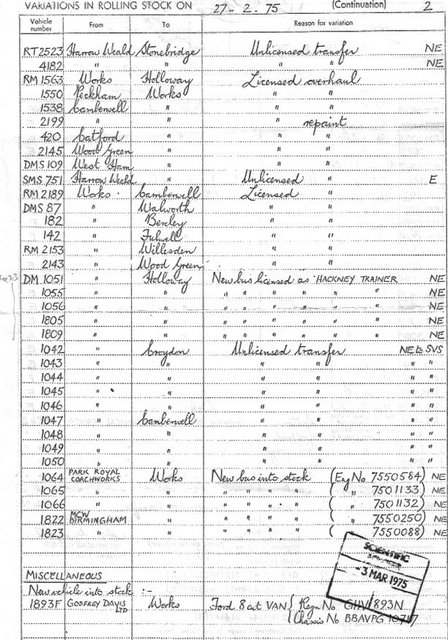 VARIATIONS IN ROLLING STOCK ON 27-2-75 (Continuation) 2
Vehicle number From To Reason for variation
RT2523 Harrow Weald Stonebridge Unlicensed transfer NE
4182 " " " " NE
RM 1563 Works Holloway Licensed overhaul
1550 Peckham Works " "
1538 Camberwell " " "
2199 " " " repaint
420 Catford " " "
2145 Wood Green " " "
DMS 109 West Ham " " "
SMS 751 Harrow Weald " Unlicensed " E
RM 2189 Works Camberwell Licensed "
DMS 87 " Walworth " "
182 " Bexley " "
142 " Fulwell " "
RM 2153 " Willesden " "
2143 " Wood Green " "
DM 1051 " Holloway New bus licensed as HACKNEY TRAINER NE
1055 " " " " " " " " NE
1056 " " " " " " " " NE
1805 " " " " " " " " NE
1809 " " " " " " " " NE
1042 " Croydon Unlicensed transfer NE to SVS
1043 " " " " " " "
1044 " " " " " " "
1045 " " " " " " "
1046 " " " " " " "
1047 " Camberwell " " " " "
1048 " " " " " " "
1049 " " " " " " "
1050 " " " " " " "
1064 PARK ROYAL COACHWORKS Works New bus into stock (Eng No 7550584) NE
1065 " " " " " " ( " 7501133) NE
1066 " " " " " " ( " 7501132) NE
1822 MCW BIRMINGHAM " " " " " ( " 7550250) NE
1823 " " " " " " ( " 7550088) NE
MISCELLANEOUS
New vehicle into stock :-
1893F GODFREY DAVIS LTD Works Ford 8 cwt VAN { Regn No GHV 893N
Chassis No BBAVPG
SCIENTIFIC
-3 MAR 1975